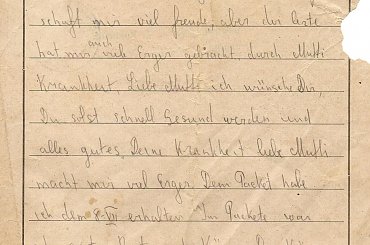 schuft mir viel freude, aber der erste
hat mir auch viel Erger gebracht durch Mutti
Krankheit. Liebe Mutti ich wünsche Dir,
Du solst schnell Gesund werden und
alles gutes, Deine Krankheit liebe Mutti
macht mir viel Erger. Dein Packet habe
ich dem 8-VII erhalten. Im Packete war